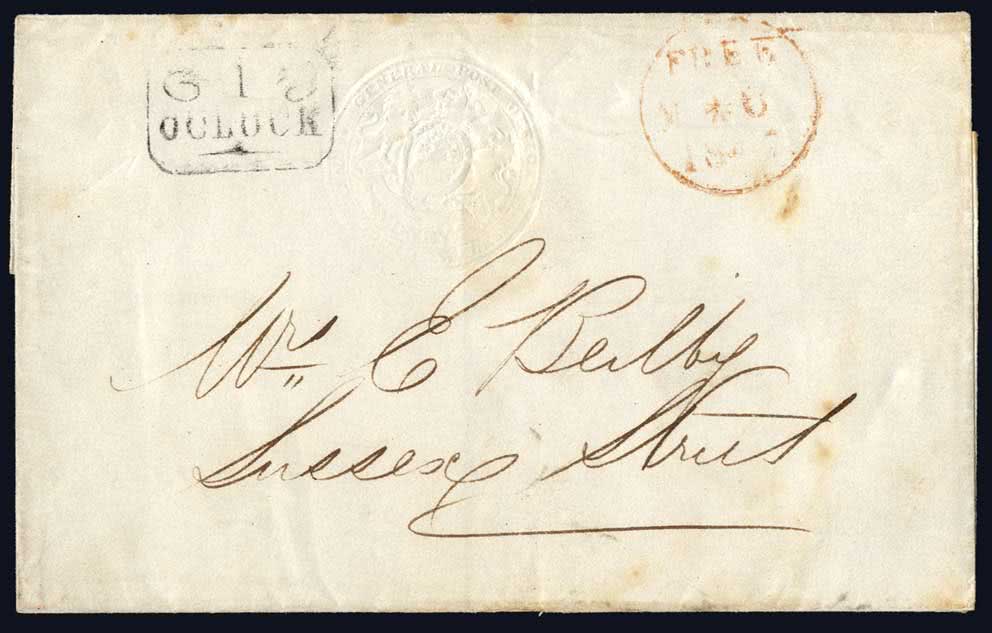 O'CLOCK
GENERAL POST
FREE
Mr. E Beilby
Sussex Street